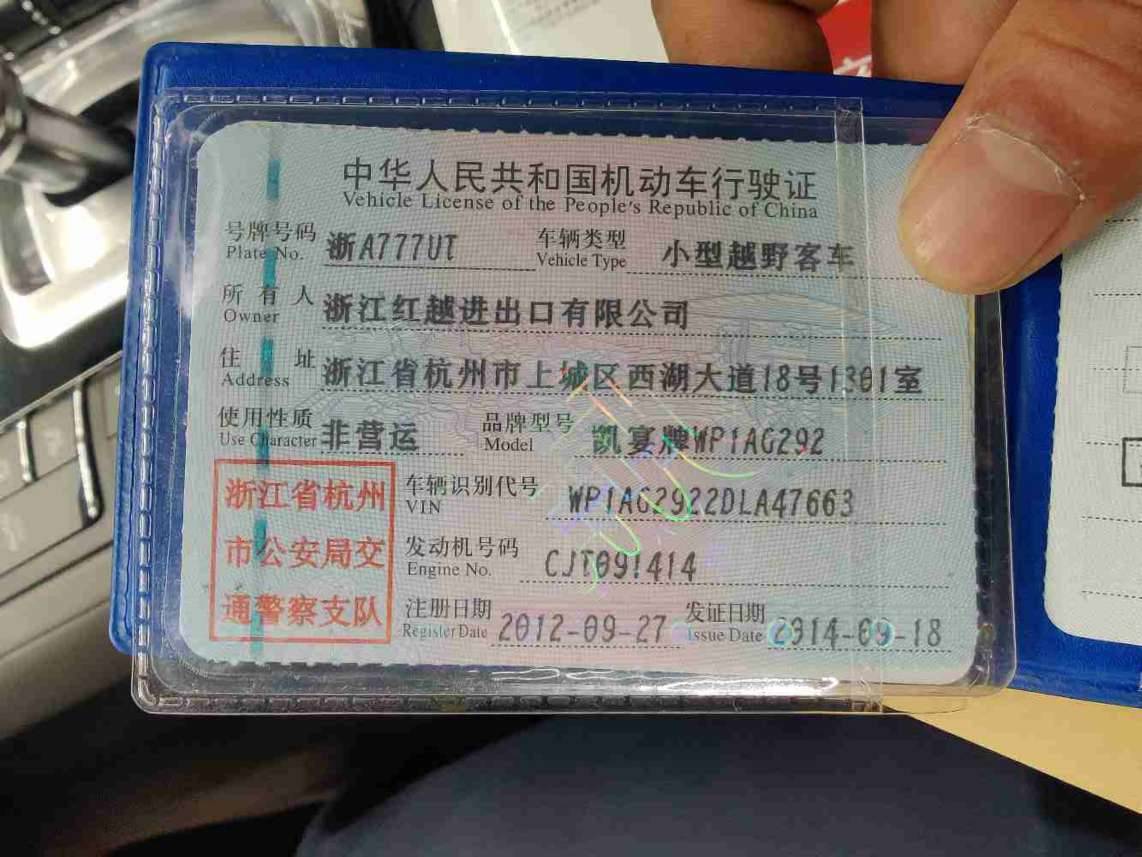 中华人民共和国机动车行驶证
Vehicle License of the People's Republic of China
号牌号码 浙A777UT 车辆类型 小型越野客车
Plate No. Vehicle Type
所有人 浙江红越进出口有限公司
Owner
住址 浙江省杭州市上城区西湖大道18号1301室
Address
使用性质 非营运 品牌型号 凯宴牌WP1AG292
Use Character Model
浙江省杭州
市公安局交
通警察支队
车辆识别代号 WP1AG2922DLA47663
VIN
发动机号码 CJT091414
Engine No.
注册日期 2012-09-27 发证日期 2014-09-18
Register Date Issue Date